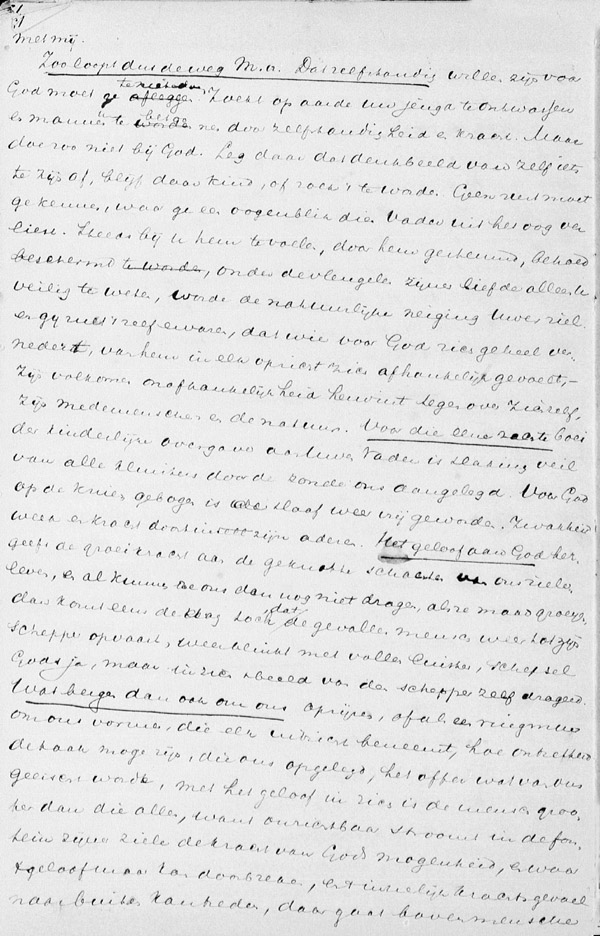 met mij.
Zoo loopt dus de weg M.v. Dat zelfstandig willen zijn voor
God moet ge afleggen. Zoekt op aarde uw jeugd te ontwassen
en mannen te worden door zelfstandigheid en kracht. Maar
doe zoo niet bij God. Leg daar dat denkbeeld van zelf iets
te zijn af, blijf daar kind, of zoek 't te worden. Geen rust moet
ge kennen, waar ge een oogenblik dien Vader uit het oog ver
liest. Steeds bij hem te vallen, door hem gesteund, behoed
beschermd te worden, onder de vleugelen zijner liefde alleen u
veilig te weten, worde de natuurlijke neiging Uwer ziel.
en gij zult 't zelf ervaren, dat wie voor God zich geheel ver
nedert, van hem in elk opzicht zich afhankelijk gevoelt,
zijn volkomen onafhankelijkheid herwint tegenover zichzelf,
zijn medemenschen en de natuur. Voor die eene zachte boei
der kinderlijke overgave aan Uwen Vader is slaking veil
van alle kluisters door de zonde ons aangelegd. Voor God
op de knieen gebogen is de slaaf weer vrij geworden. Zwakheid
week en kracht doorstroomt zijn aderen. Het geloof aan God her
geeft de groeikracht aan de geknakte schachten van ons ziele
leven, en al kunnen ze ons dan nog niet dragen, als ze maar groeyen
dan komt eens de dag toch, dat de gevallen mensch weer tot zijn
schepper opvaart, weer blinkt met vollen luister, schepsel
Gods ja, maar in zich 't beeld van den schepper zelf dragend.
Wat bergen dan ook om ons oprijzen, of als een ringmuur
om ons vormen, die elk uitzicht beneemt, hoe ontzettend
de taak moge zijn, die ons opgelegd, het offer wat van ons
geeischt wordt, met het geloof in zich is de mensch groo
ter dan die allen, want onzichtbaar stroomt in de fon
tein zijner ziele de kracht van Gods mogenheid, en waar
't geloof maar kan doorbreken, en 't innerlijk krachtsgevoel
naar buiten kan treden, daar gaat boven menschen